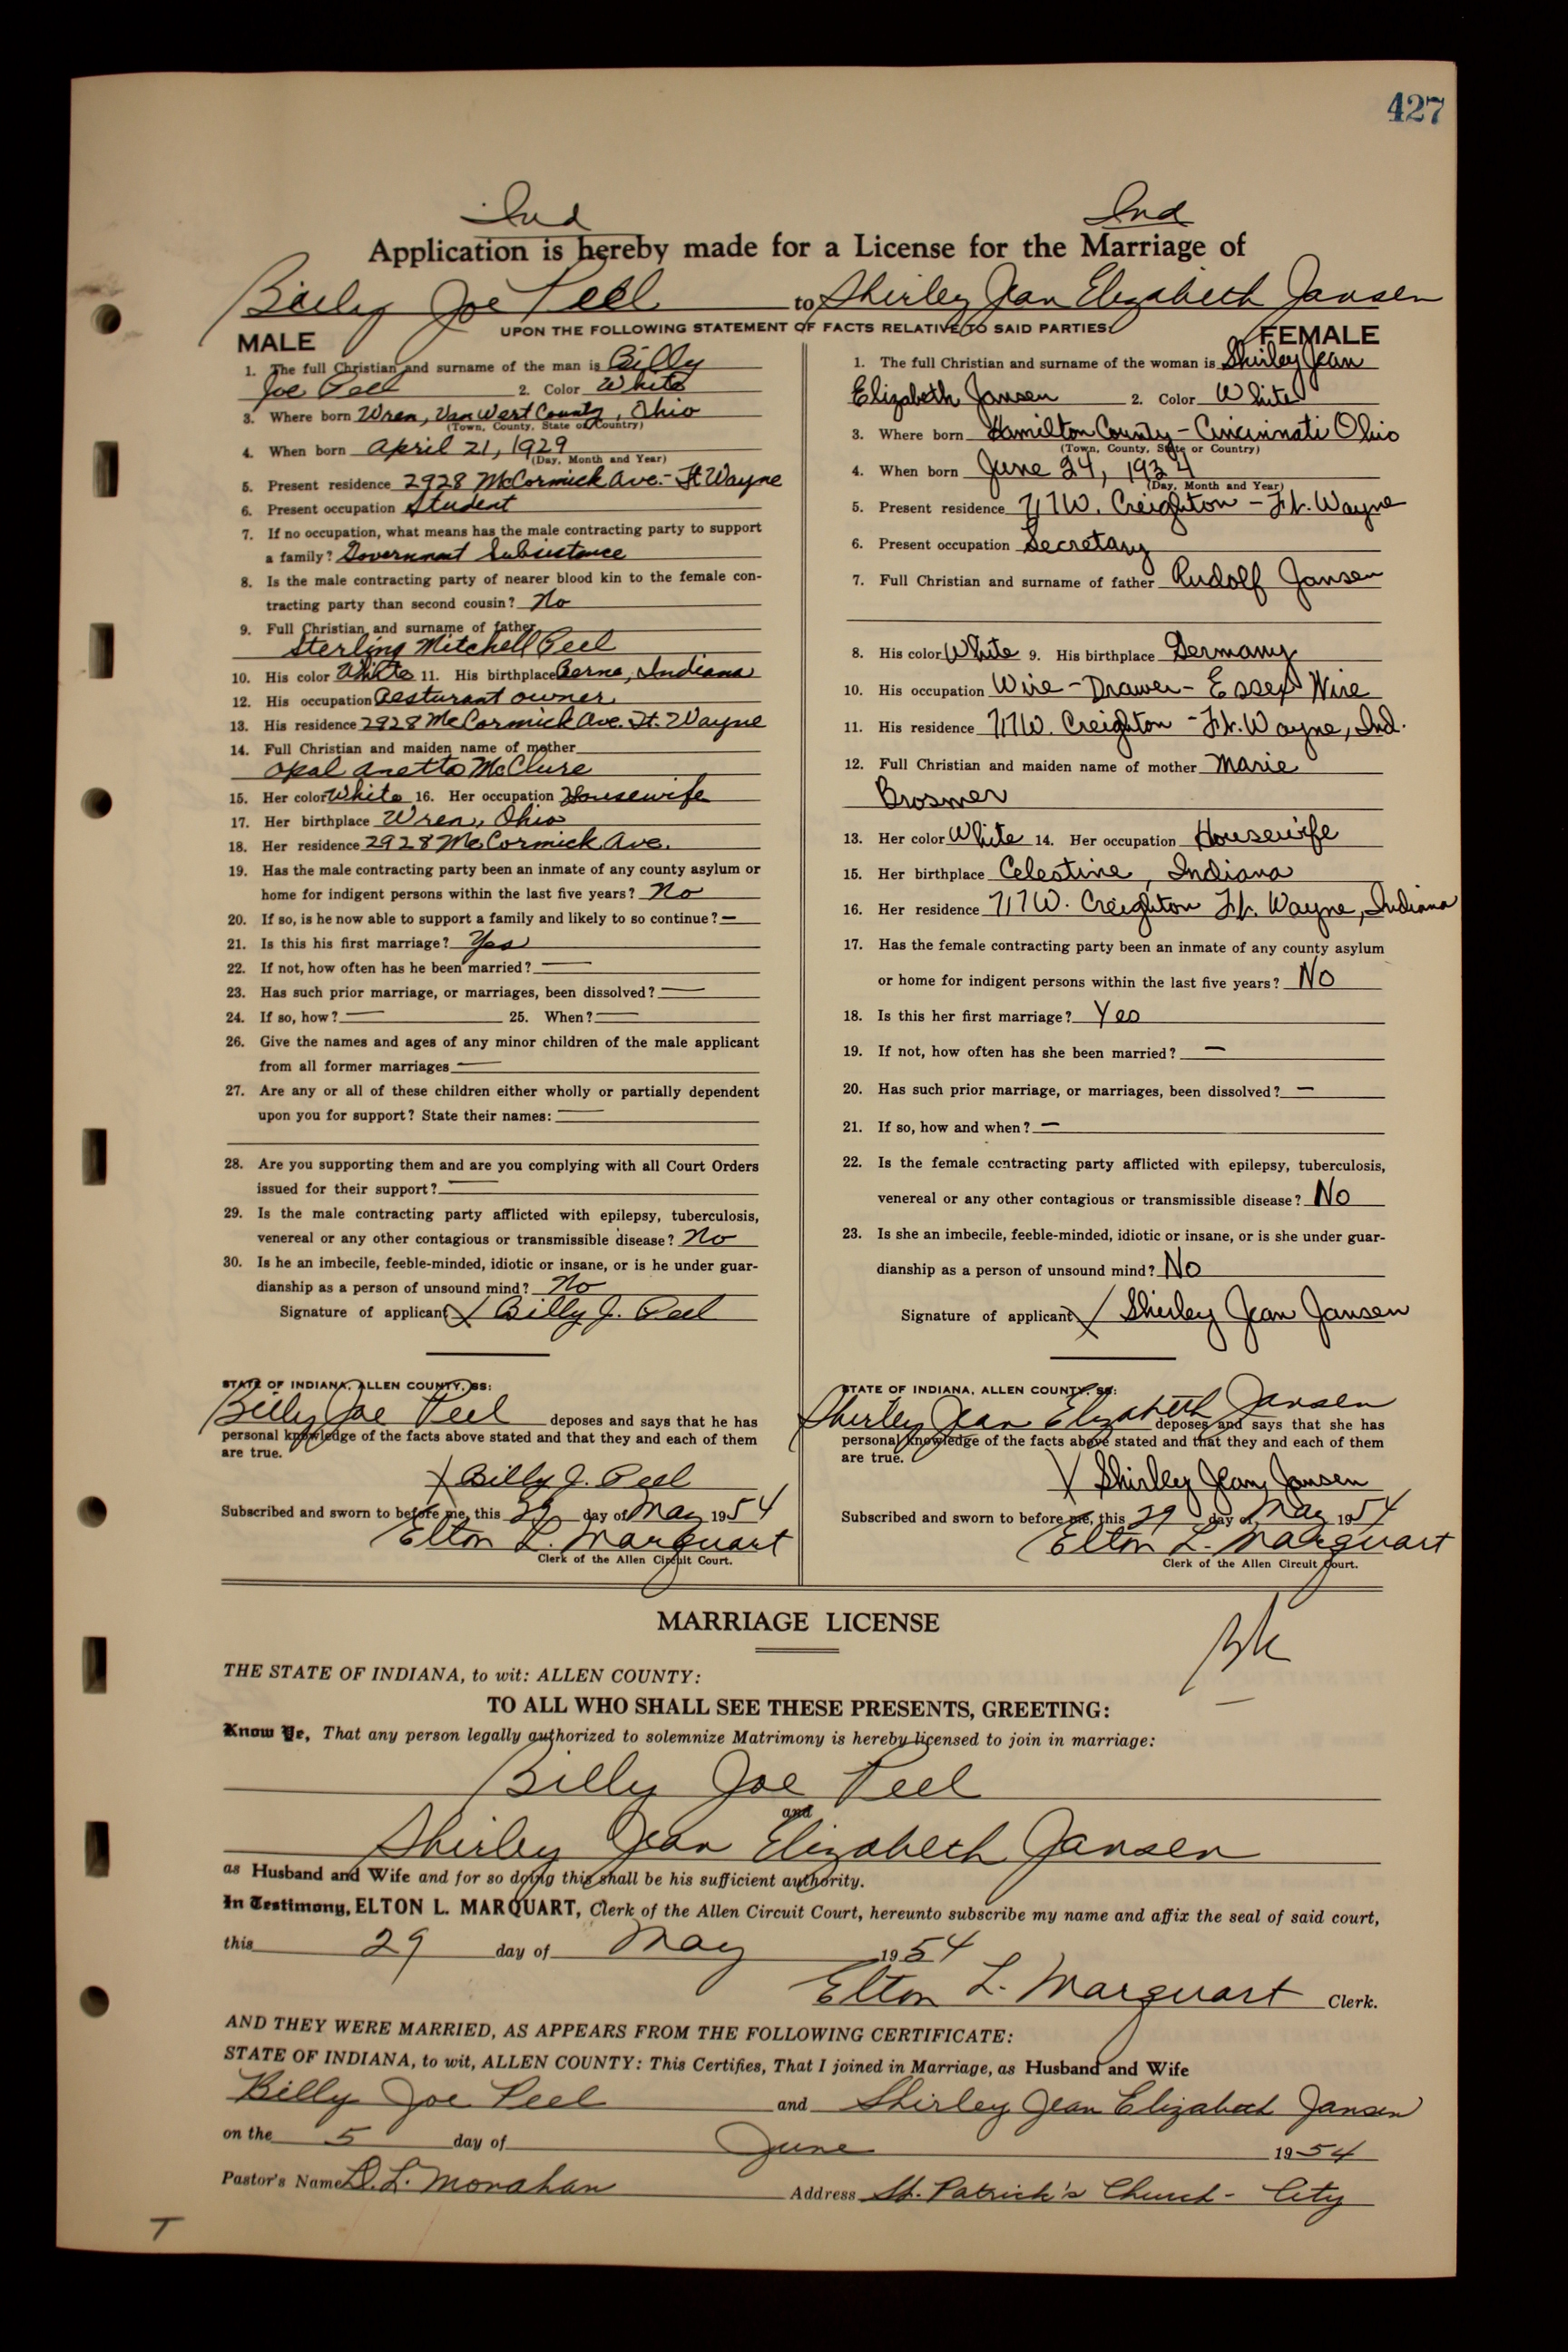 427
Ind Ind
Application is hereby made for a License for the Marriage of
Billy Joe Peel to Shirley Jean Elizabeth Jansen
UPON THE FOLLOWING STATEMENT OF FACTS RELATIVE TO SAID PARTIES:
MALE
1. The full Christian and surname of the man is Billy
Joe Peel 2. Color White
3. Where born Wren, Van Wert County, Ohio
(Town, County, State or Country)
4. When born April 21, 1929
(Day, Month and Year)
5. Present residence 2928 McCormick Ave.- Ft Wayne
6. Present occupation Student
7. If no occupation, what means has the male contracting party to support
a family? Government Subsistance
8. Is the male contracting party of nearer blood kin to the female con-
tracting party than second cousin? No
9. Full Christian and surname of father
Sterling Mitchell Peel
10. His color White 11. His birthplace Berne, Indiana
12. His occupation Resturant owner
13. His residence 2928 McCormick Ave. Ft. Wayne
14. Full Christian and maiden name of mother
Opal Anetta McClure
15. Her color White 16. Her occupation Housewife
17. Her birthplace Wren, Ohio
18. Her residence 2928 McCormick Ave.
19. Has the male contracting party been an inmate of any county asylum or
home for indigent persons within the last five years? No
20. If so, is he now able to support a family and likely to so continue? —
21. Is this his first marriage? Yes
22. If not, how often has he been married? —
23. Has such prior marriage, or marriages, been dissolved? —
24. If so, how? — 25. When? —
26. Give the names and ages of any minor children of the male applicant
from all former marriages —
27. Are any or all of these children either wholly or partially dependent
upon you for support? State their names: —
28. Are you supporting them and are you complying with all Court Orders
issued for their support? —
29. Is the male contracting party afflicted with epilepsy, tuberculosis,
venereal or any other contagious or transmissible disease? No
30. Is he an imbecile, feeble-minded, idiotic or insane, or is he under guar-
dianship as a person of unsound mind? No
Signature of applicant X Billy J. Peel
STATE OF INDIANA, ALLEN COUNTY, SS:
Billy Joe Peel deposes and says that he has
personal knowledge of the facts above stated and that they and each of them
are true.
X Billy J. Peel
Subscribed and sworn to before me, this 29 day of May 1954
Elton L. Marquart
Clerk of the Allen Circuit Court.
FEMALE
1. The full Christian and surname of the woman is Shirley Jean
Elizabeth Jansen 2. Color White
3. Where born Hamilton County - Cincinnati Ohio
(Town, County, State or Country)
4. When born June 24, 1934
(Day, Month and Year)
5. Present residence 717 W. Creighton - Ft. Wayne
6. Present occupation Secretary
7. Full Christian and surname of father Rudolf Jansen
8. His color White 9. His birthplace Germany
10. His occupation Wire - Drawer - Essex Wire
11. His residence 717 W. Creighton - Ft. Wayne, Ind.
12. Full Christian and maiden name of mother Marie
Brosmer
13. Her color White 14. Her occupation Housewife
15. Her birthplace Celestine, Indiana
16. Her residence 717 W. Creighton Ft. Wayne, Indiana
17. Has the female contracting party been an inmate of any county asylum
or home for indigent persons within the last five years? No
18. Is this her first marriage? Yes
19. If not, how often has she been married? —
20. Has such prior marriage, or marriages, been dissolved? —
21. If so, how and when? —
22. Is the female contracting party afflicted with epilepsy, tuberculosis,
venereal or any other contagious or transmissible disease? No
23. Is she an imbecile, feeble-minded, idiotic or insane, or is she under guar-
dianship as a person of unsound mind? No
Signature of applicant X Shirley Jean Jansen
STATE OF INDIANA, ALLEN COUNTY, SS:
Shirley Jean Elizabeth Jansen deposes and says that she has
personal knowledge of the facts above stated and that they and each of them
are true.
X Shirley Jean Jansen
Subscribed and sworn to before me, this 29 day of May 1954
Elton L. Marquart
Clerk of the Allen Circuit Court.
MARRIAGE LICENSE
THE STATE OF INDIANA, to wit: ALLEN COUNTY:
TO ALL WHO SHALL SEE THESE PRESENTS, GREETING:
Know Ye, That any person legally authorized to solemnize Matrimony is hereby licensed to join in marriage:
Billy Joe Peel
and
Shirley Jean Elizabeth Jansen
as Husband and Wife and for so doing this shall be his sufficient authority.
In Testimony, ELTON L. MARQUART, Clerk of the Allen Circuit Court, hereunto subscribe my name and affix the seal of said court,
this 29 day of May 1954
Elton L. Marquart Clerk.
AND THEY WERE MARRIED, AS APPEARS FROM THE FOLLOWING CERTIFICATE:
STATE OF INDIANA, to wit, ALLEN COUNTY: This Certifies, That I joined in Marriage, as Husband and Wife
Billy Joe Peel and Shirley Jean Elizabeth Jansen
on the 5 day of June 1954
Pastor's Name D. L. Monahan Address St. Patrick's Church - City
T